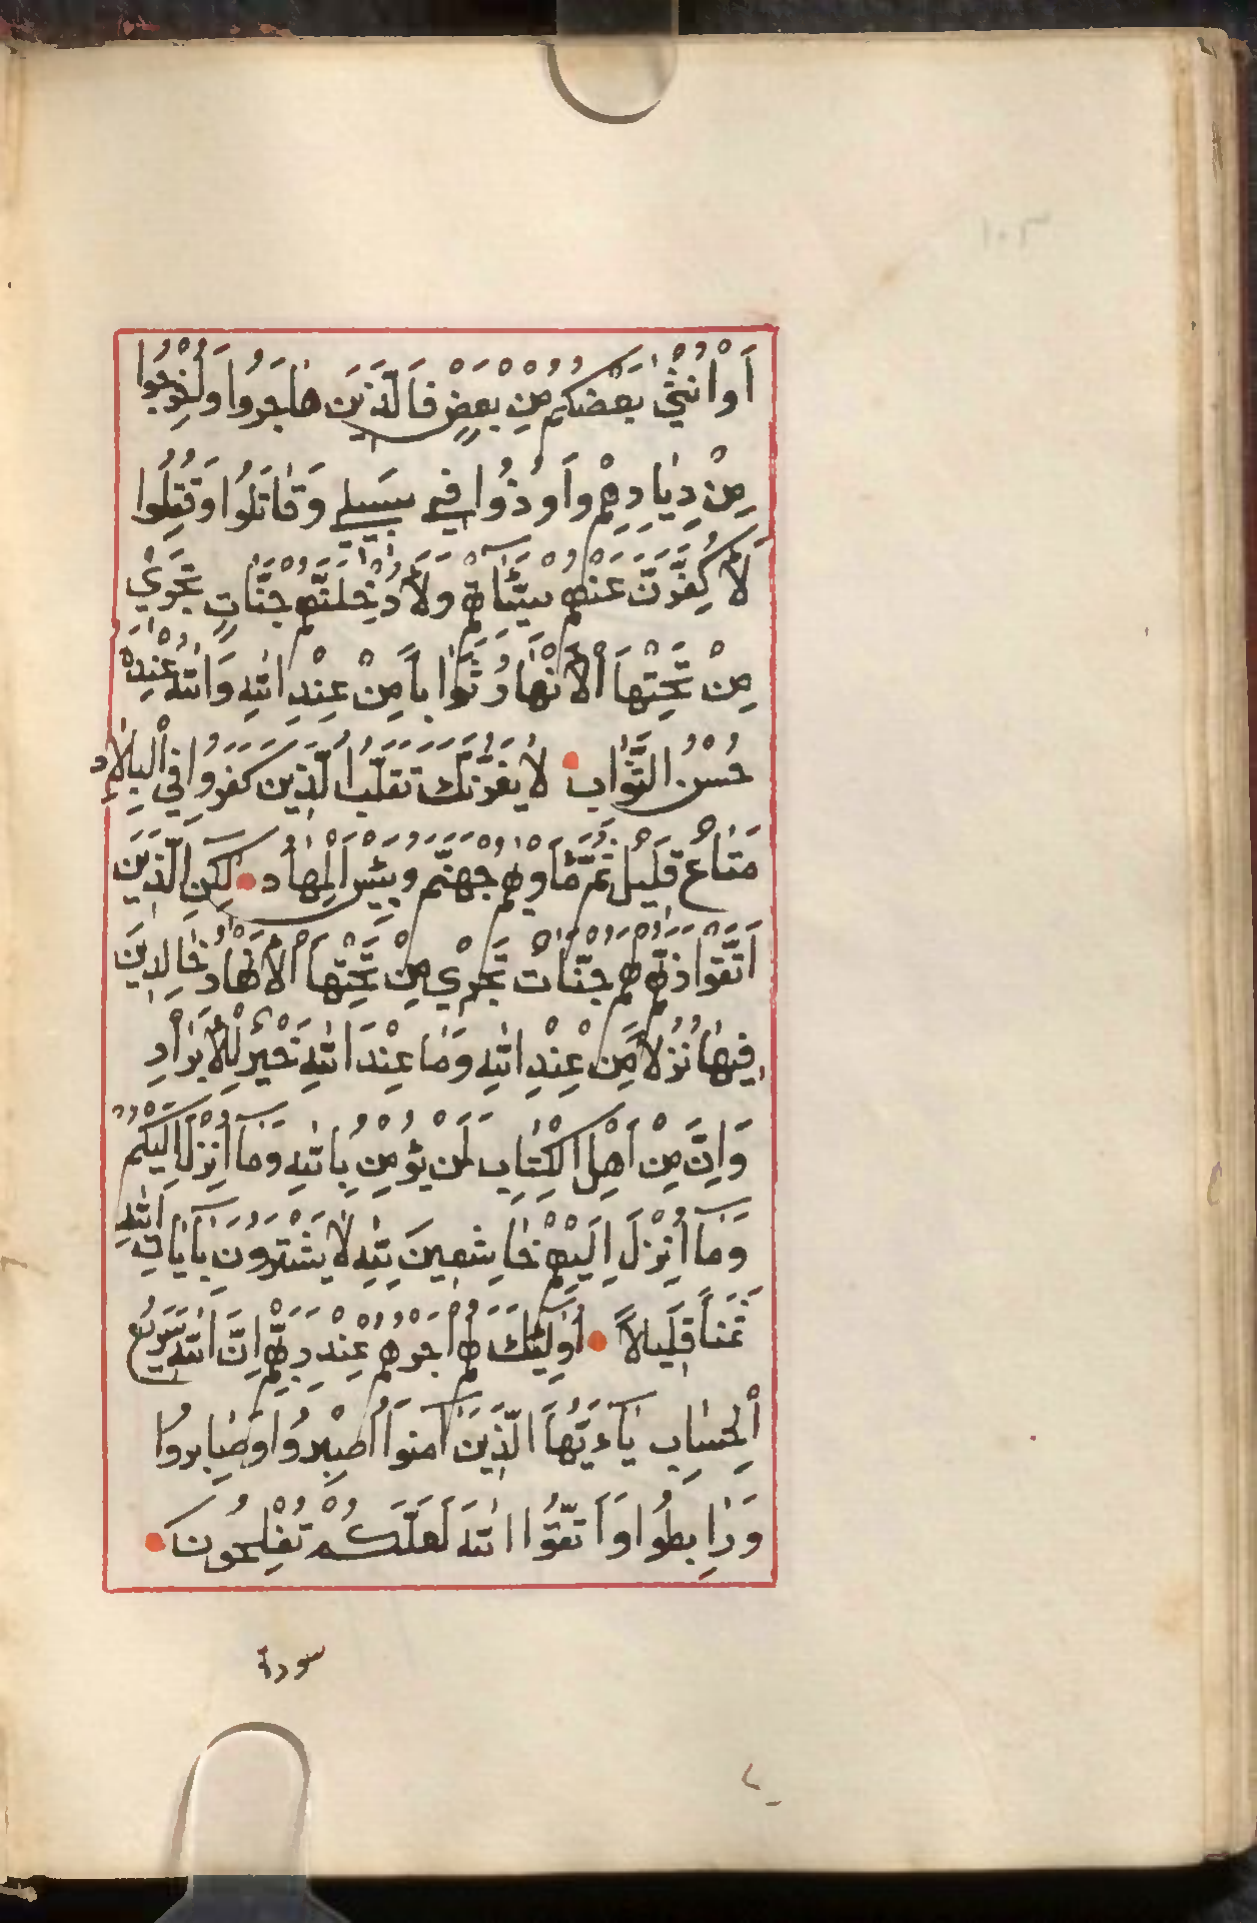 ١٠٢
اَوْاُنْثٰى بَعْضُكُمْ مِنْ بَعْضٍ فَالَّذِيْنَ هَاجَرُوا وَاُخْرِجُوا
مِنْ دِيَارِهِمْ وَاُوذُوا فِي سَبِيلِي وَقَاتَلُوا وَقُتِلُوا
لَاُكَفِّرَنَّ عَنْهُمْ سَيِّئَاتِهِمْ وَلَاُدْخِلَنَّهُمْ جَنَّاتٍ تَجْرِي
مِنْ تَحْتِهَا الْاَنْهَارُ ثَوَابًا مِنْ عِنْدِ اللّٰهِ وَاللّٰهُ عِنْدَهُ
حُسْنُ الثَّوَابِ لَا يَغُرَّنَّكَ تَقَلُّبُ الَّذِينَ كَفَرُوا فِي الْبِلَادِ
مَتَاعٌ قَلِيلٌ ثُمَّ مَأْوٰيهُمْ جَهَنَّمُ وَبِئْسَ الْمِهَادُ لٰكِنِ الَّذِينَ
اتَّقَوْا رَبَّهُمْ لَهُمْ جَنَّاتٌ تَجْرِي مِنْ تَحْتِهَا الْاَنْهَارُ خَالِدِينَ
فِيهَا نُزُلًا مِنْ عِنْدِ اللّٰهِ وَمَا عِنْدَ اللّٰهِ خَيْرٌ لِلْاَبْرَارِ
وَاِنَّ مِنْ اَهْلِ الْكِتَابِ لَمَنْ يُؤْمِنُ بِاللّٰهِ وَمَآ اُنْزِلَ اِلَيْكُمْ
وَمَآ اُنْزِلَ اِلَيْهِمْ خَاشِعِينَ لِلّٰهِ لَا يَشْتَرُونَ بِاٰيَاتِ اللّٰهِ
ثَمَنًا قَلِيلًا اُولٰٓئِكَ لَهُمْ اَجْرُهُمْ عِنْدَ رَبِّهِمْ اِنَّ اللّٰهَ سَرِيعُ
الْحِسَابِ يَآءَيُّهَا الَّذِينَ اٰمَنُوا اصْبِرُوا وَصَابِرُوا
وَرَابِطُوا وَاتَّقُوا اللّٰهَ لَعَلَّكُمْ تُفْلِحُونَ
سورة